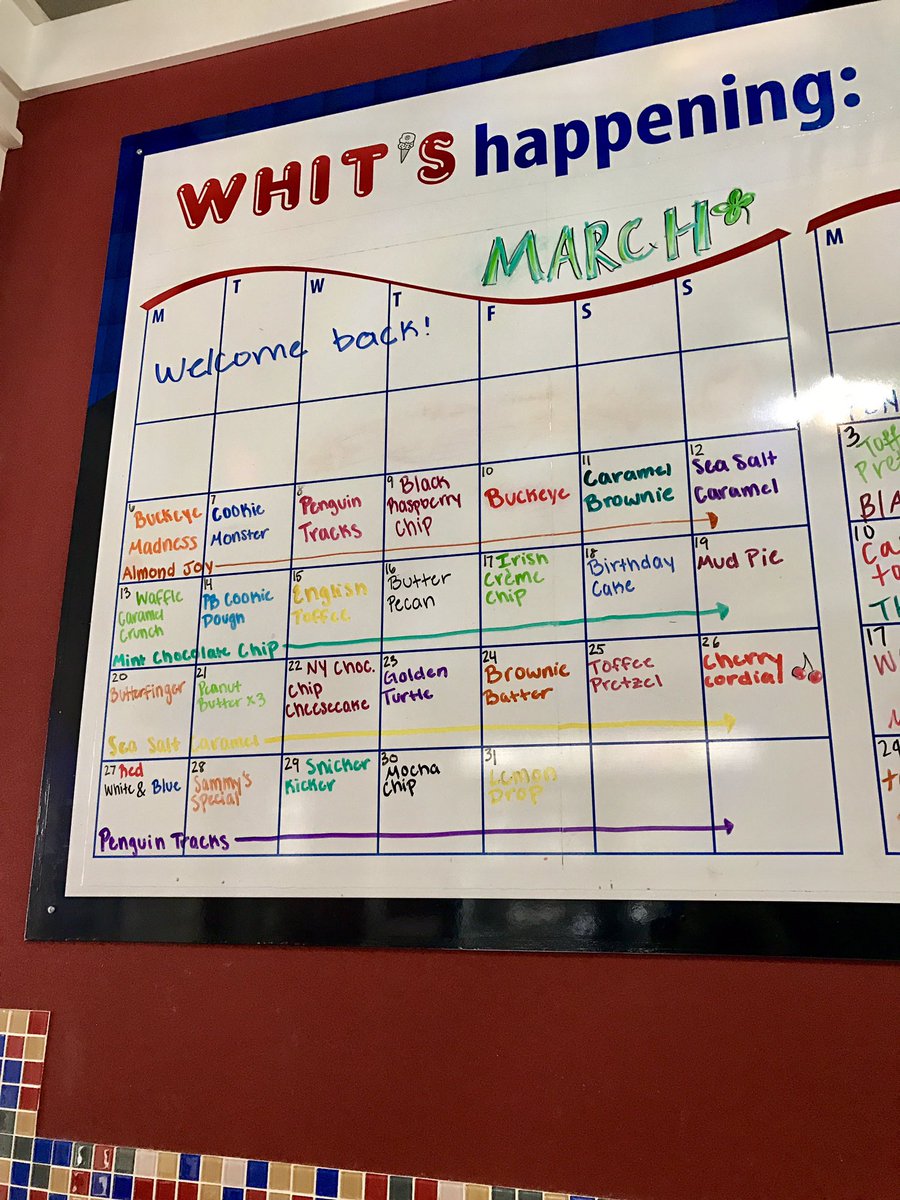 WHIT'S happening:
MARCH
M T W T F S S
Welcome back!
6 Buckeye Madness
7 Cookie Monster
8 Penguin Tracks
9 Black Raspberry Chip
10 Buckeye
11 Caramel Brownie
12 Sea Salt Caramel
Almond Joy
13 Waffle Caramel Crunch
14 PB Cookie Dough
15 English Toffee
16 Butter Pecan
17 Irish Crème Chip
18 Birthday Cake
19 Mud Pie
Mint Chocolate Chip
20 Butterfinger
21 Peanut Butter x3
22 NY Choc. Chip Cheesecake
23 Golden Turtle
24 Brownie Batter
25 Toffee Pretzel
26 Cherry Cordial
Sea Salt Caramel
27 Red White & Blue
28 Sammy's Special
29 Snicker Kicker
30 Mocha Chip
31 Lemon Drop
Penguin Tracks
M
3
10
17
24